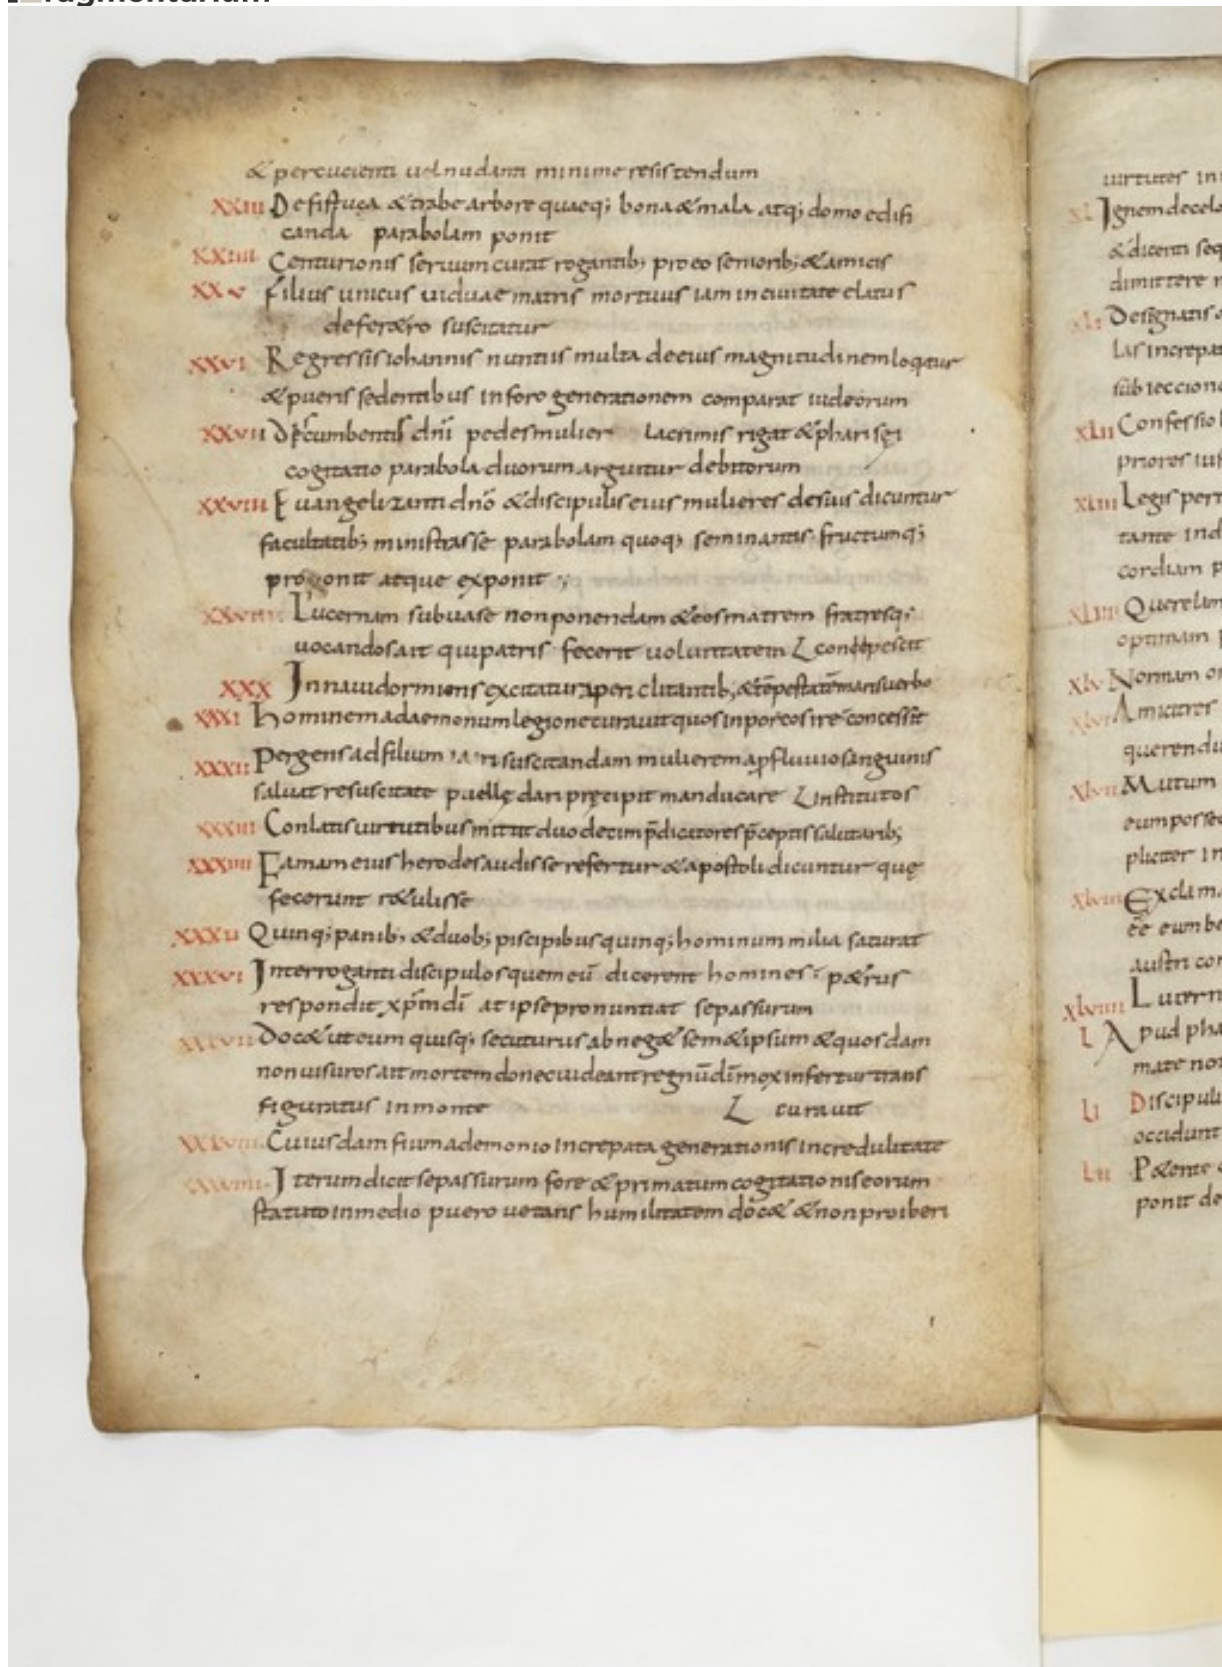 & percucienti uel nudanti minime resistendum
XXIII De fistuca & trabe arbore quaeq; bona & mala atq; domo edifi
canda parabolam ponit
XXIIII Centurionis seruum curat rogantib; pro eo seniorib; & amicis
XXV filius unicus uiduae matris mortuus iam in ciuitate elatus
de fer&ro suscitatur
XXVI Regressis iohannis nuntiis multa de eius magnitudinem loqıtur
& pueris sedentibus in foro generationem comparat iudeorum
XXVII Decumbentis dn̄i pedes mulier lacrimis rigat & pharisęi
cogitatio parabola duorum arguitur debitorum
XXVIII Euangelizanti dn̄o & discipulis eius mulieres de suis dicuntur
facultatib; ministrasse parabolam quoq; seminantis fructumq;
proponit atque exponit
XXVIIII Lucernam sub uase non ponendam & eos matrem fratresq;
uocandos ait qui patris fecerit uoluntatem conpescit
XXX In naui dormiens excitatur a periclitantib; & tēpestatē mans uerbo
XXXI hominem a daemonum legione curauit quos in porcos ire concessit
XXXII Pergens ad filium suscitandam mulierem a ꝓfluuio sanguinis
saluat resuscitate puellę dari pręcipit manducare institutos
XXXIII Conlatis uirtutibus mittit duodecim p̄dicatores p̄ceptis salutarib;
XXXIIII Famam eius herodes audisse refertur & apostoli dicuntur quę
fecerunt r&ulisse
XXXV Quinq; panib; & duob; piscipibus quinq; hominum milia saturat
XXXVI Interroganti discipulos quem eū dicerent homines p&rus
respondit xp̄m dī at ipse pronuntiat se passurum
XXXVII Doc& ut eum quisq; secuturus abneg& sem&ipsum & quosdam
non uisuros ait mortem donec uideant regnū dī mox infertur trans
figuratus in monte curauit
XXXVIII Cuiusdam fium a demonio increpata generationis incredulitate
XXXVIIII Iterum dicit se passurum fore & primatum cogitationis eorum
statuto in medio puero uetans humilitatem doc& & non proiberi
uirtutes in
XL Ignem de celo
& dicenti seq
dimittere
XLI Designatis
las increpat
subieccion
XLII Confessio
priores
XLIII Legis per
tante ind
cordiam p
XLIIII Querelam
optimam
XLV Normam or
XLVI Amicitres
querendu
XLVII Mutum
eum posse
pliciter in
XLVIII Exclama
eē eum be
austri con
XLVIIII Lucern
L Apud pha
mate no
LI Discipuli
occidunt
LII P&ente
ponit de